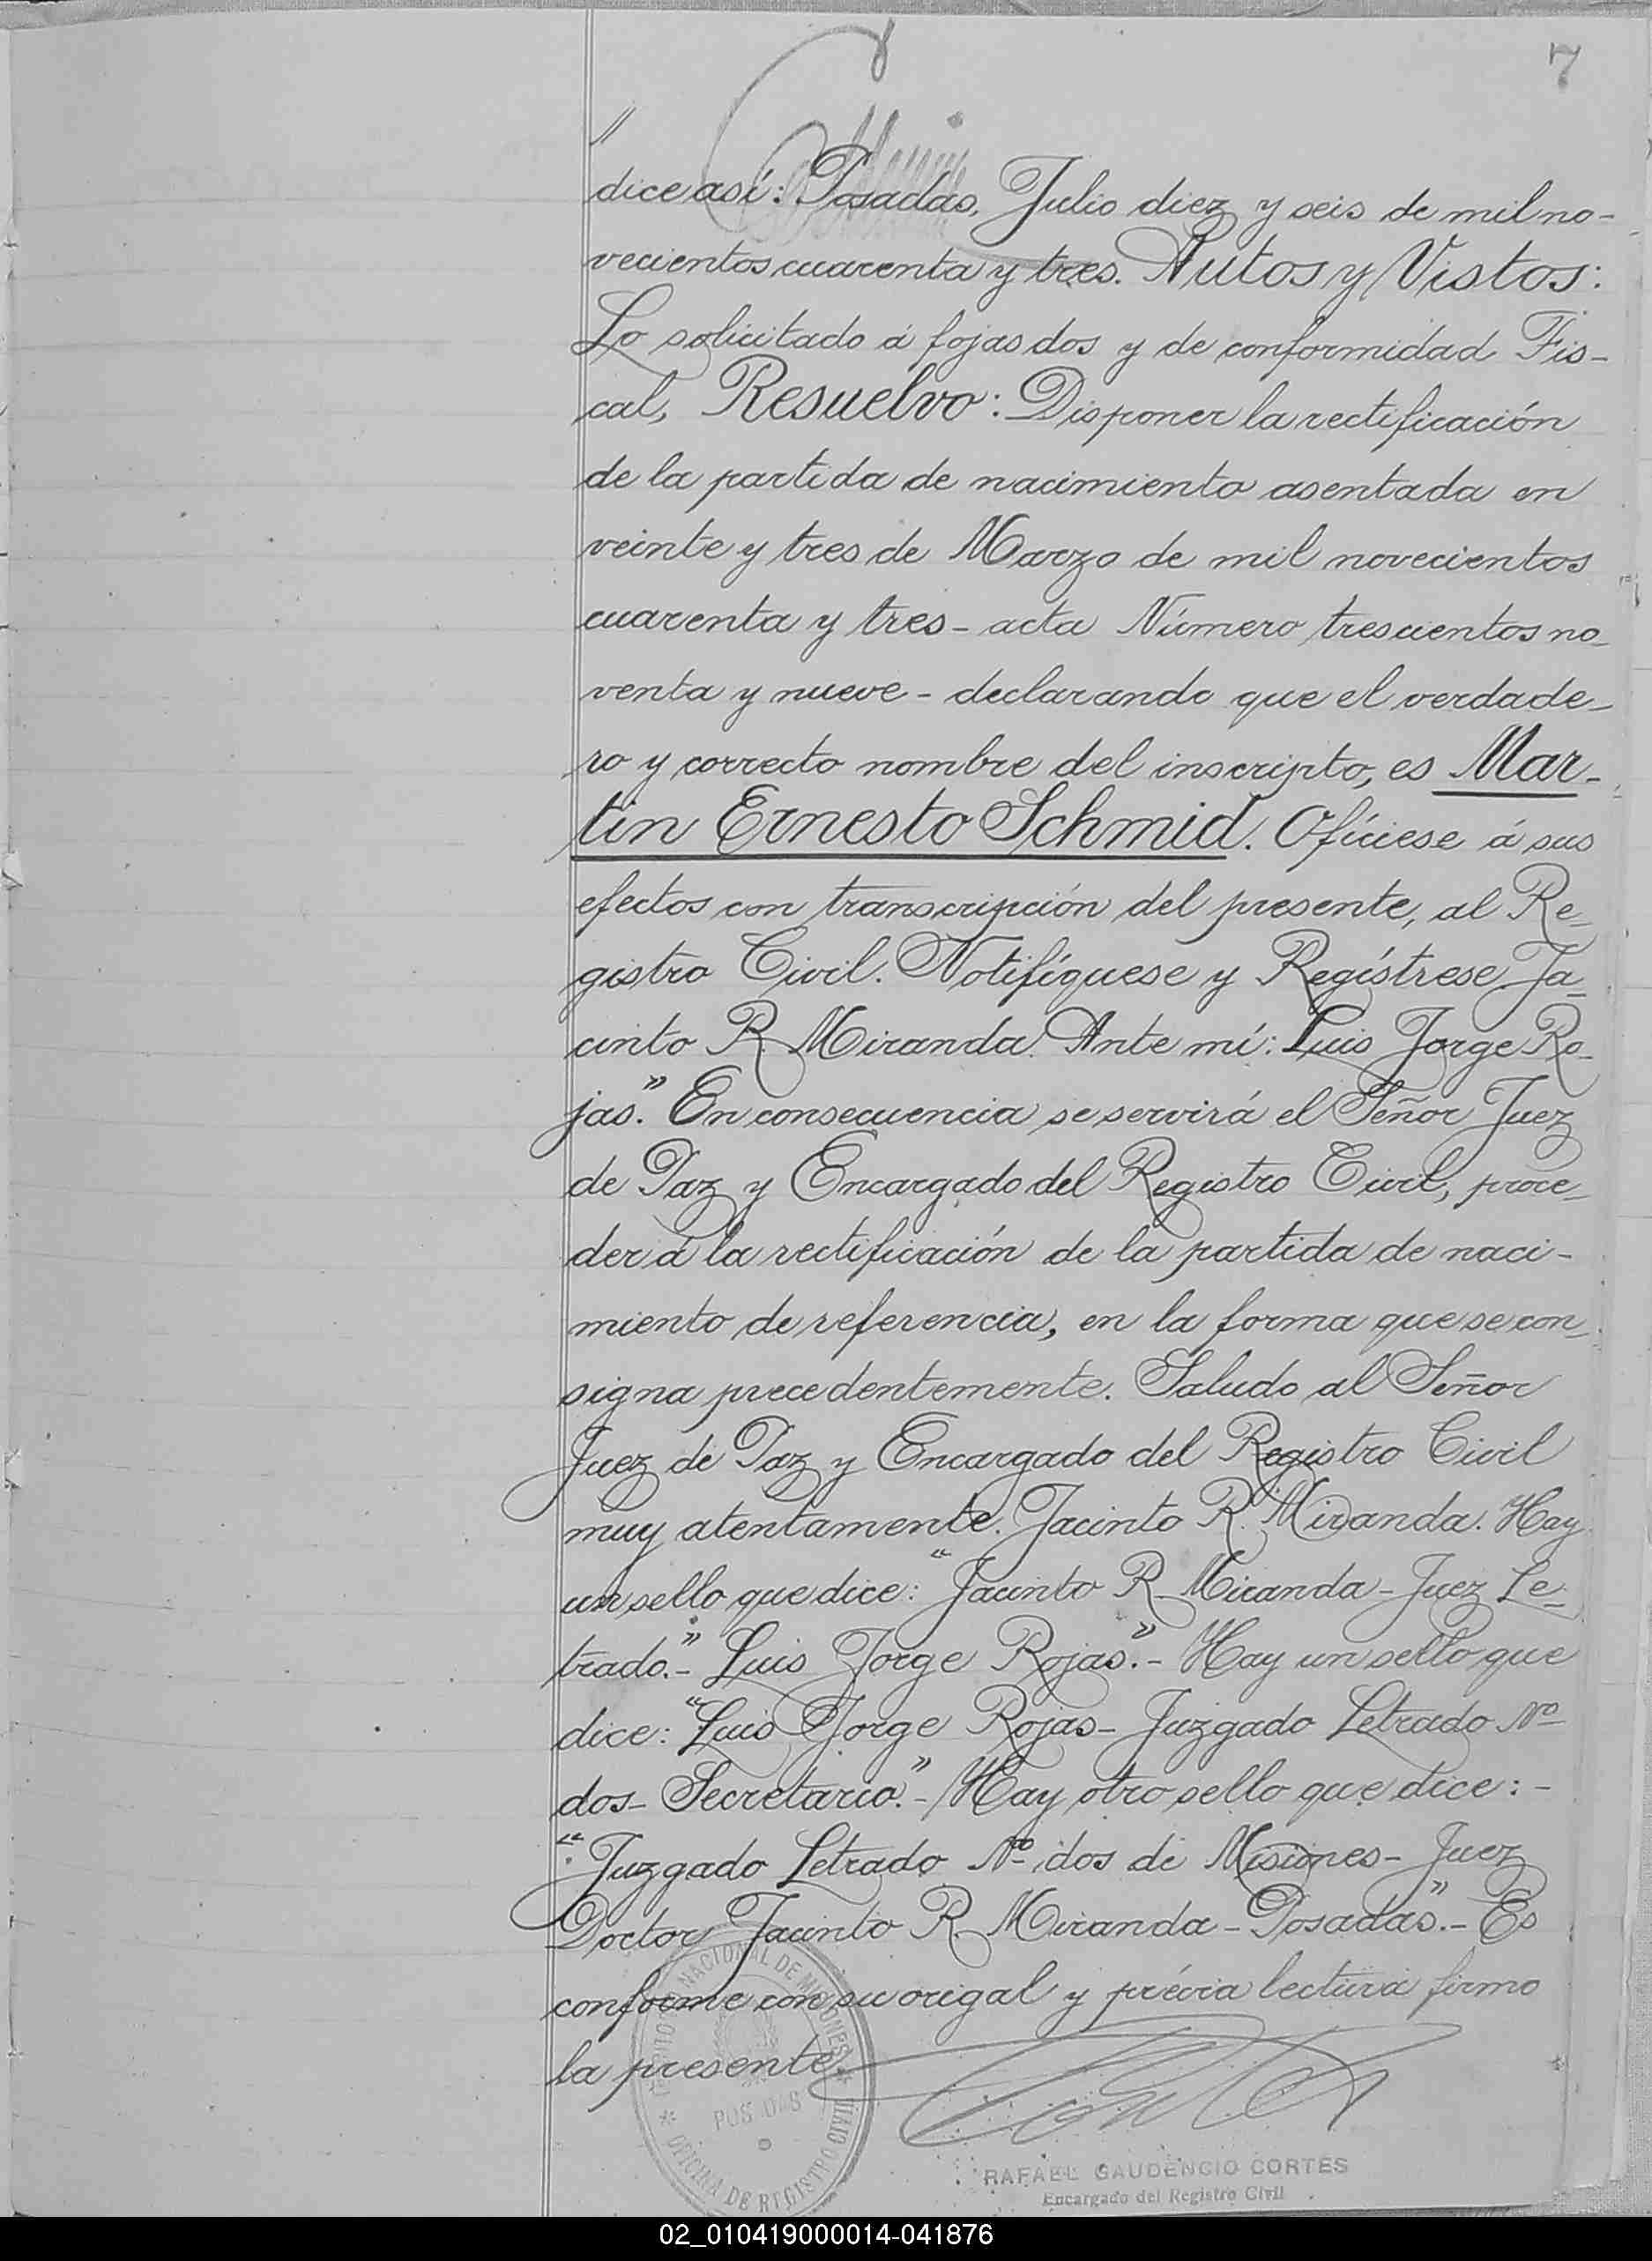 7
//
dice así: Posadas, Julio diez y seis de mil no-
vecientos cuarenta y tres. Autos y Vistos:
Lo solicitado á fojas dos y de conformidad Fis-
cal, Resuelvo: Disponer la rectificación
de la partida de nacimiento asentada en
veinte y tres de Marzo de mil novecientos
cuarenta y tres - acta Número trescientos no-
venta y nueve - declarando que el verdade-
ro y correcto nombre del inscripto, es Mar-
tin Ernesto Schmid. Ofíciese á sus
efectos con transcripción del presente, al Re-
gistro Civil. Notifíquese y Regístrese. Ja-
cinto R. Miranda. Ante mí: Luis Jorge Ro-
jas." En consecuencia se servirá el Señor Juez
de Paz y Encargado del Registro Civil, proce-
der á la rectificación de la partida de naci-
miento de referencia, en la forma que se con-
signa precedentemente. Saludo al Señor
Juez de Paz y Encargado del Registro Civil
muy atentamente. Jacinto R. Miranda. Hay
un sello que dice: "Jacinto R. Miranda - Juez Le-
trado." - Luis Jorge Rojas." - Hay un sello que
dice: "Luis Jorge Rojas - Juzgado Letrado Nº
dos - Secretario." - Hay otro sello que dice: -
"Juzgado Letrado Nº dos de Misiones - Juez
Doctor Jacinto R. Miranda - Posadas." - Es
conforme con su origal y prévia lectura firmo
la presente
NACIONAL DE MISIONES
POSADAS
OFICINA DE REGISTRO CIVIL
RAFAEL GAUDENCIO CORTES
Encargado del Registro Civil
02_010419000014-041876